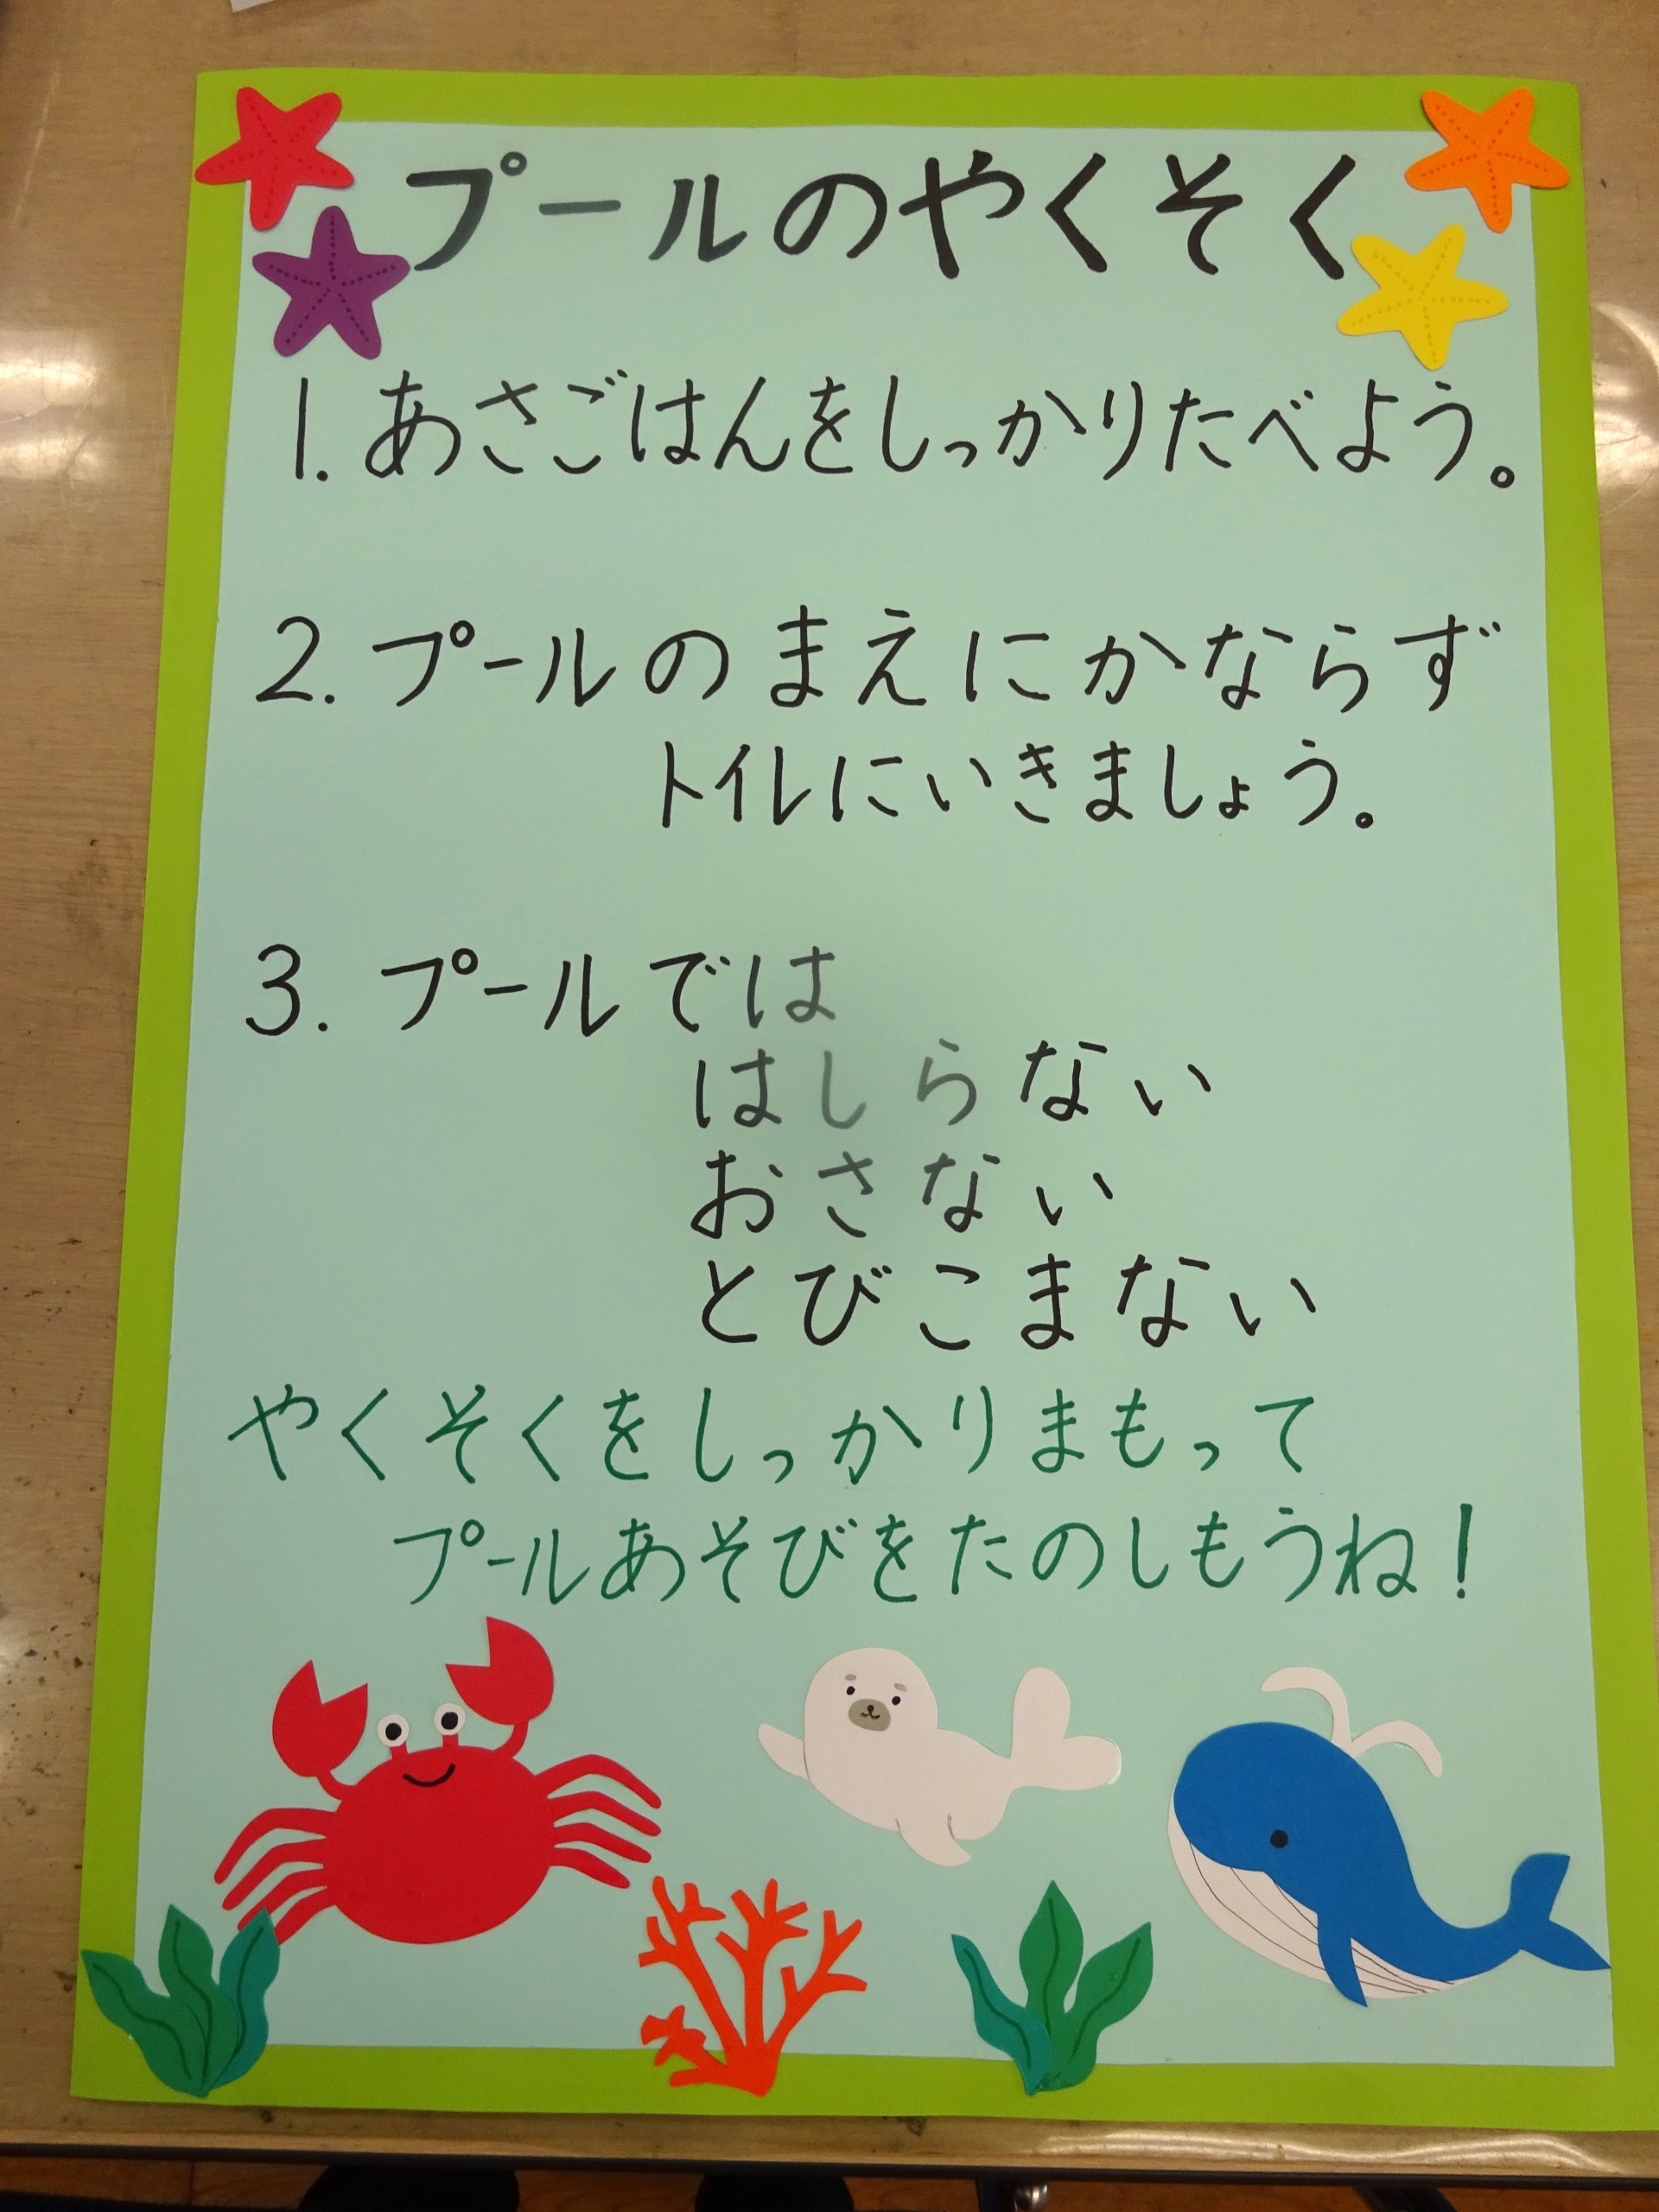 プールのやくそく
1. あさごはんをしっかりたべよう。
2. プールのまえにかならず
トイレにいきましょう。
3. プールでは
はしらない
おさない
とびこまない
やくそくをしっかりまもって
プールあそびをたのしもうね!